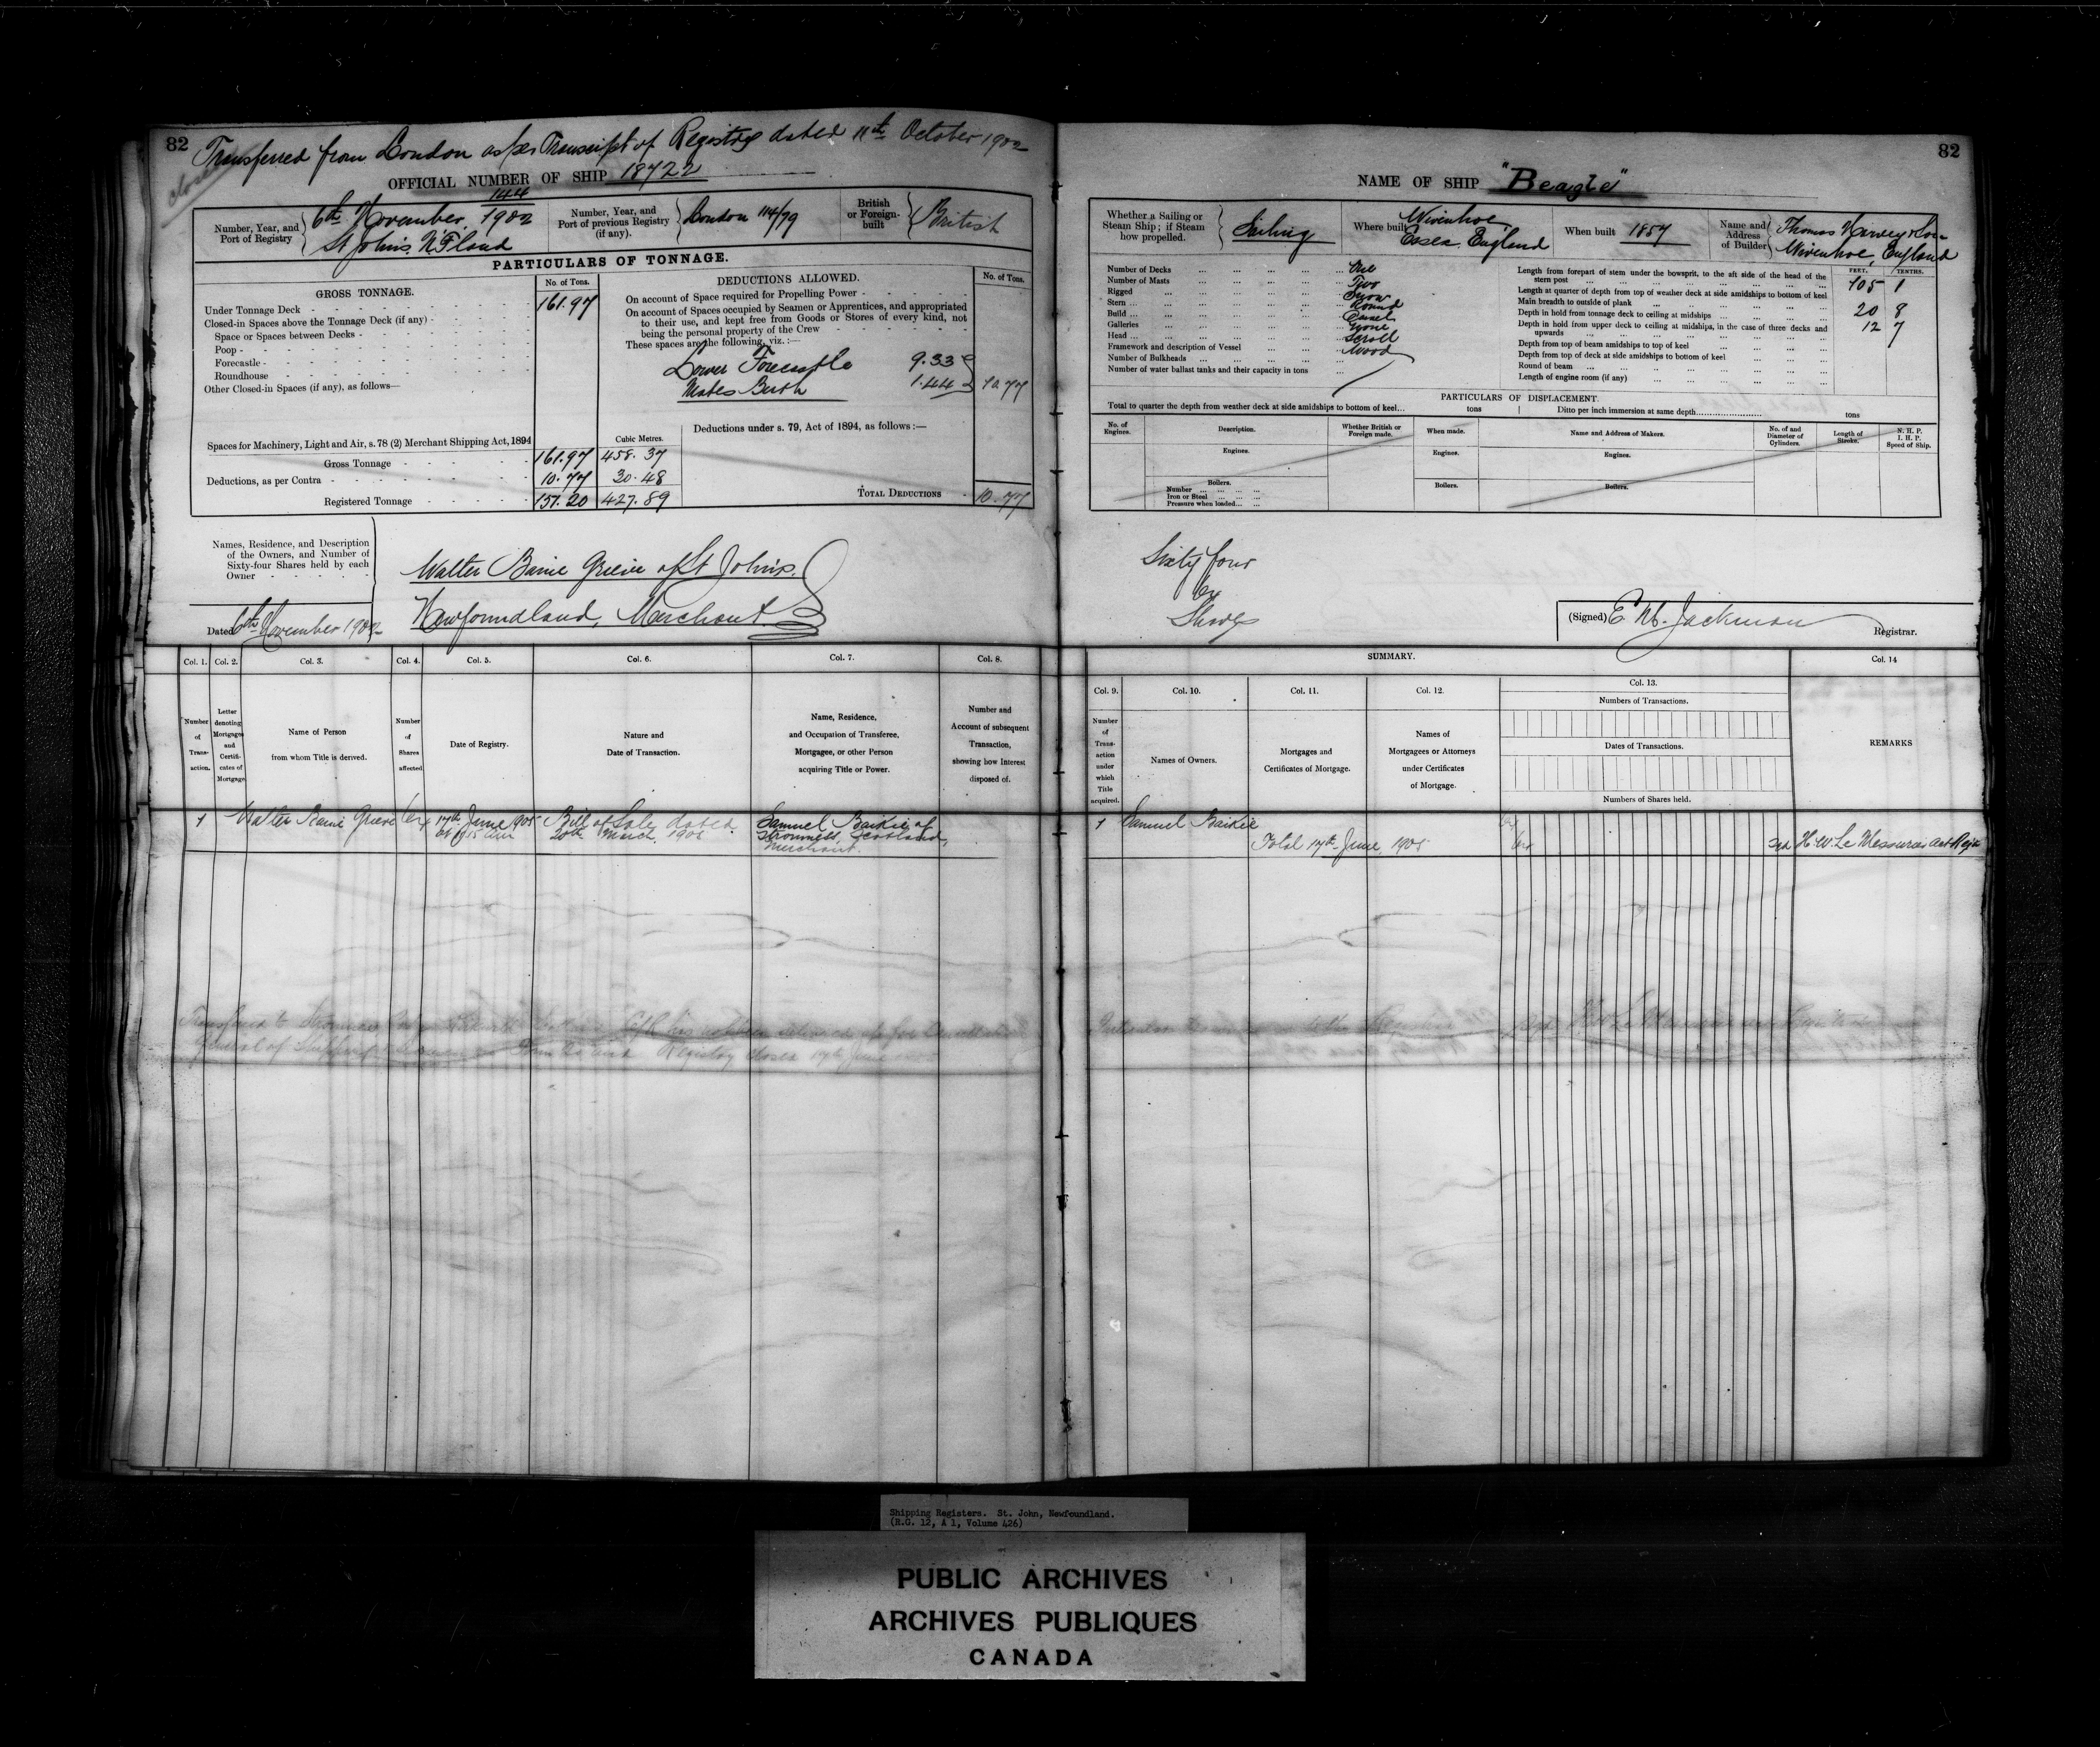 82
Transferred from London as per Transcript of Registry dated 11th October 1902
closed
OFFICIAL NUMBER OF SHIP 18722
Number, Year, and Port of Registry
144
6th November, 1902
St John's. N'F'land
Number, Year, and Port of previous Registry (if any).
London 114/79
British or Foreign-built
British
PARTICULARS OF TONNAGE.
GROSS TONNAGE.
No. of Tons.
Under Tonnage Deck 161.97
Closed-in Spaces above the Tonnage Deck (if any)
Space or Spaces between Decks
Poop
Forecastle
Roundhouse
Other Closed-in Spaces (if any), as follows—
Spaces for Machinery, Light and Air, s. 78 (2) Merchant Shipping Act, 1894
Cubic Metres.
Gross Tonnage 161.97 458.37
Deductions, as per Contra 10.77 30.48
Registered Tonnage 151.20 427.89
DEDUCTIONS ALLOWED.
No. of Tons.
On account of Space required for Propelling Power
On account of Spaces occupied by Seamen or Apprentices, and appropriated
to their use, and kept free from Goods or Stores of every kind, not
being the personal property of the Crew
These spaces are the following, viz. :—
Lower Forecastle 9.33
Mates Berth 1.44 10.77
Deductions under s. 79, Act of 1894, as follows :—
TOTAL DEDUCTIONS 10.77
Names, Residence, and Description
of the Owners, and Number of
Sixty-four Shares held by each
Owner
Walter Baine Grieve of St John's.
Newfoundland, Merchant
Dated 6th November 1902
Col. 1. Col. 2. Col. 3. Col. 4. Col. 5. Col. 6. Col. 7. Col. 8.
Number of Transaction.
Letter denoting Mortgages and Certificates of Mortgage
Name of Person from whom Title is derived.
Number of Shares affected
Date of Registry.
Nature and Date of Transaction.
Name, Residence, and Occupation of Transferee, Mortgagee, or other Person acquiring Title or Power.
Number and Account of subsequent Transaction, showing how Interest disposed of.
1 Walter Baine Grieve 64 17th June 1905 Bill of Sale dated Samuel Baikie of
at 11.15 am 20th March, 1905 Stromness Scotland,
Merchant.
Registry closed 17th June
82
NAME OF SHIP "Beagle"
Whether a Sailing or Steam Ship; if Steam how propelled.
Sailing
Where built
Wivenhoe,
Essex, England
When built 1857
Name and Address of Builder
Thomas Harvey & Son
Wivenhoe, England
Number of Decks One
Number of Masts Two
Rigged Snow
Stern Round
Build Carvel
Galleries None
Head Scroll
Framework and description of Vessel Wood
Number of Bulkheads
Number of water ballast tanks and their capacity in tons
FEET. TENTHS.
Length from forepart of stem under the bowsprit, to the aft side of the head of the
stern post 105 1
Length at quarter of depth from top of weather deck at side amidships to bottom of keel
Main breadth to outside of plank 20 8
Depth in hold from tonnage deck to ceiling at midships 12 7
Depth in hold from upper deck to ceiling at midships, in the case of three decks and
upwards
Depth from top of beam amidships to top of keel
Depth from top of deck at side amidships to bottom of keel
Round of beam
Length of engine room (if any)
PARTICULARS OF DISPLACEMENT.
Total to quarter the depth from weather deck at side amidships to bottom of keel... tons Ditto per inch immersion at same depth tons
No. of Engines.
Description.
Whether British or Foreign made.
When made.
Name and Address of Makers.
No. of and Diameter of Cylinders.
Length of Stroke.
N. H. P. I. H. P. Speed of Ship.
Engines. Engines. Engines.
Boilers. Boilers. Boilers.
Number
Iron or Steel
Pressure when loaded
Sixty four
64
Shares
(Signed) E. M. Jackman
Registrar.
SUMMARY.
Col. 9. Col. 10. Col. 11. Col. 12. Col. 13. Col. 14
Number of Transaction under which Title acquired.
Names of Owners.
Mortgages and Certificates of Mortgage.
Names of Mortgagees or Attorneys under Certificates of Mortgage.
Numbers of Transactions.
Dates of Transactions.
Numbers of Shares held.
REMARKS
1 Samuel Baikie 64
Total 17th June, 1905 64 Sgd H. W. Le Messurier Act Regr
Shipping Registers. St. John, Newfoundland.
(R.G. 12, A 1, Volume 426)
PUBLIC ARCHIVES
ARCHIVES PUBLIQUES
CANADA